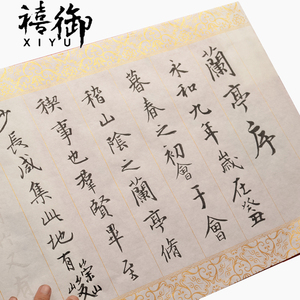 禧御
XIYU
蘭亭序
永和九年歲在癸丑
暮春之初會于會
稽山陰之蘭亭脩
禊事也羣賢畢至
少長咸集此地有
崇山